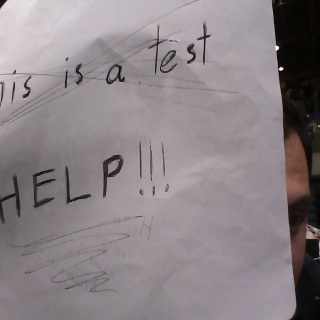 is is a test
HELP!!!